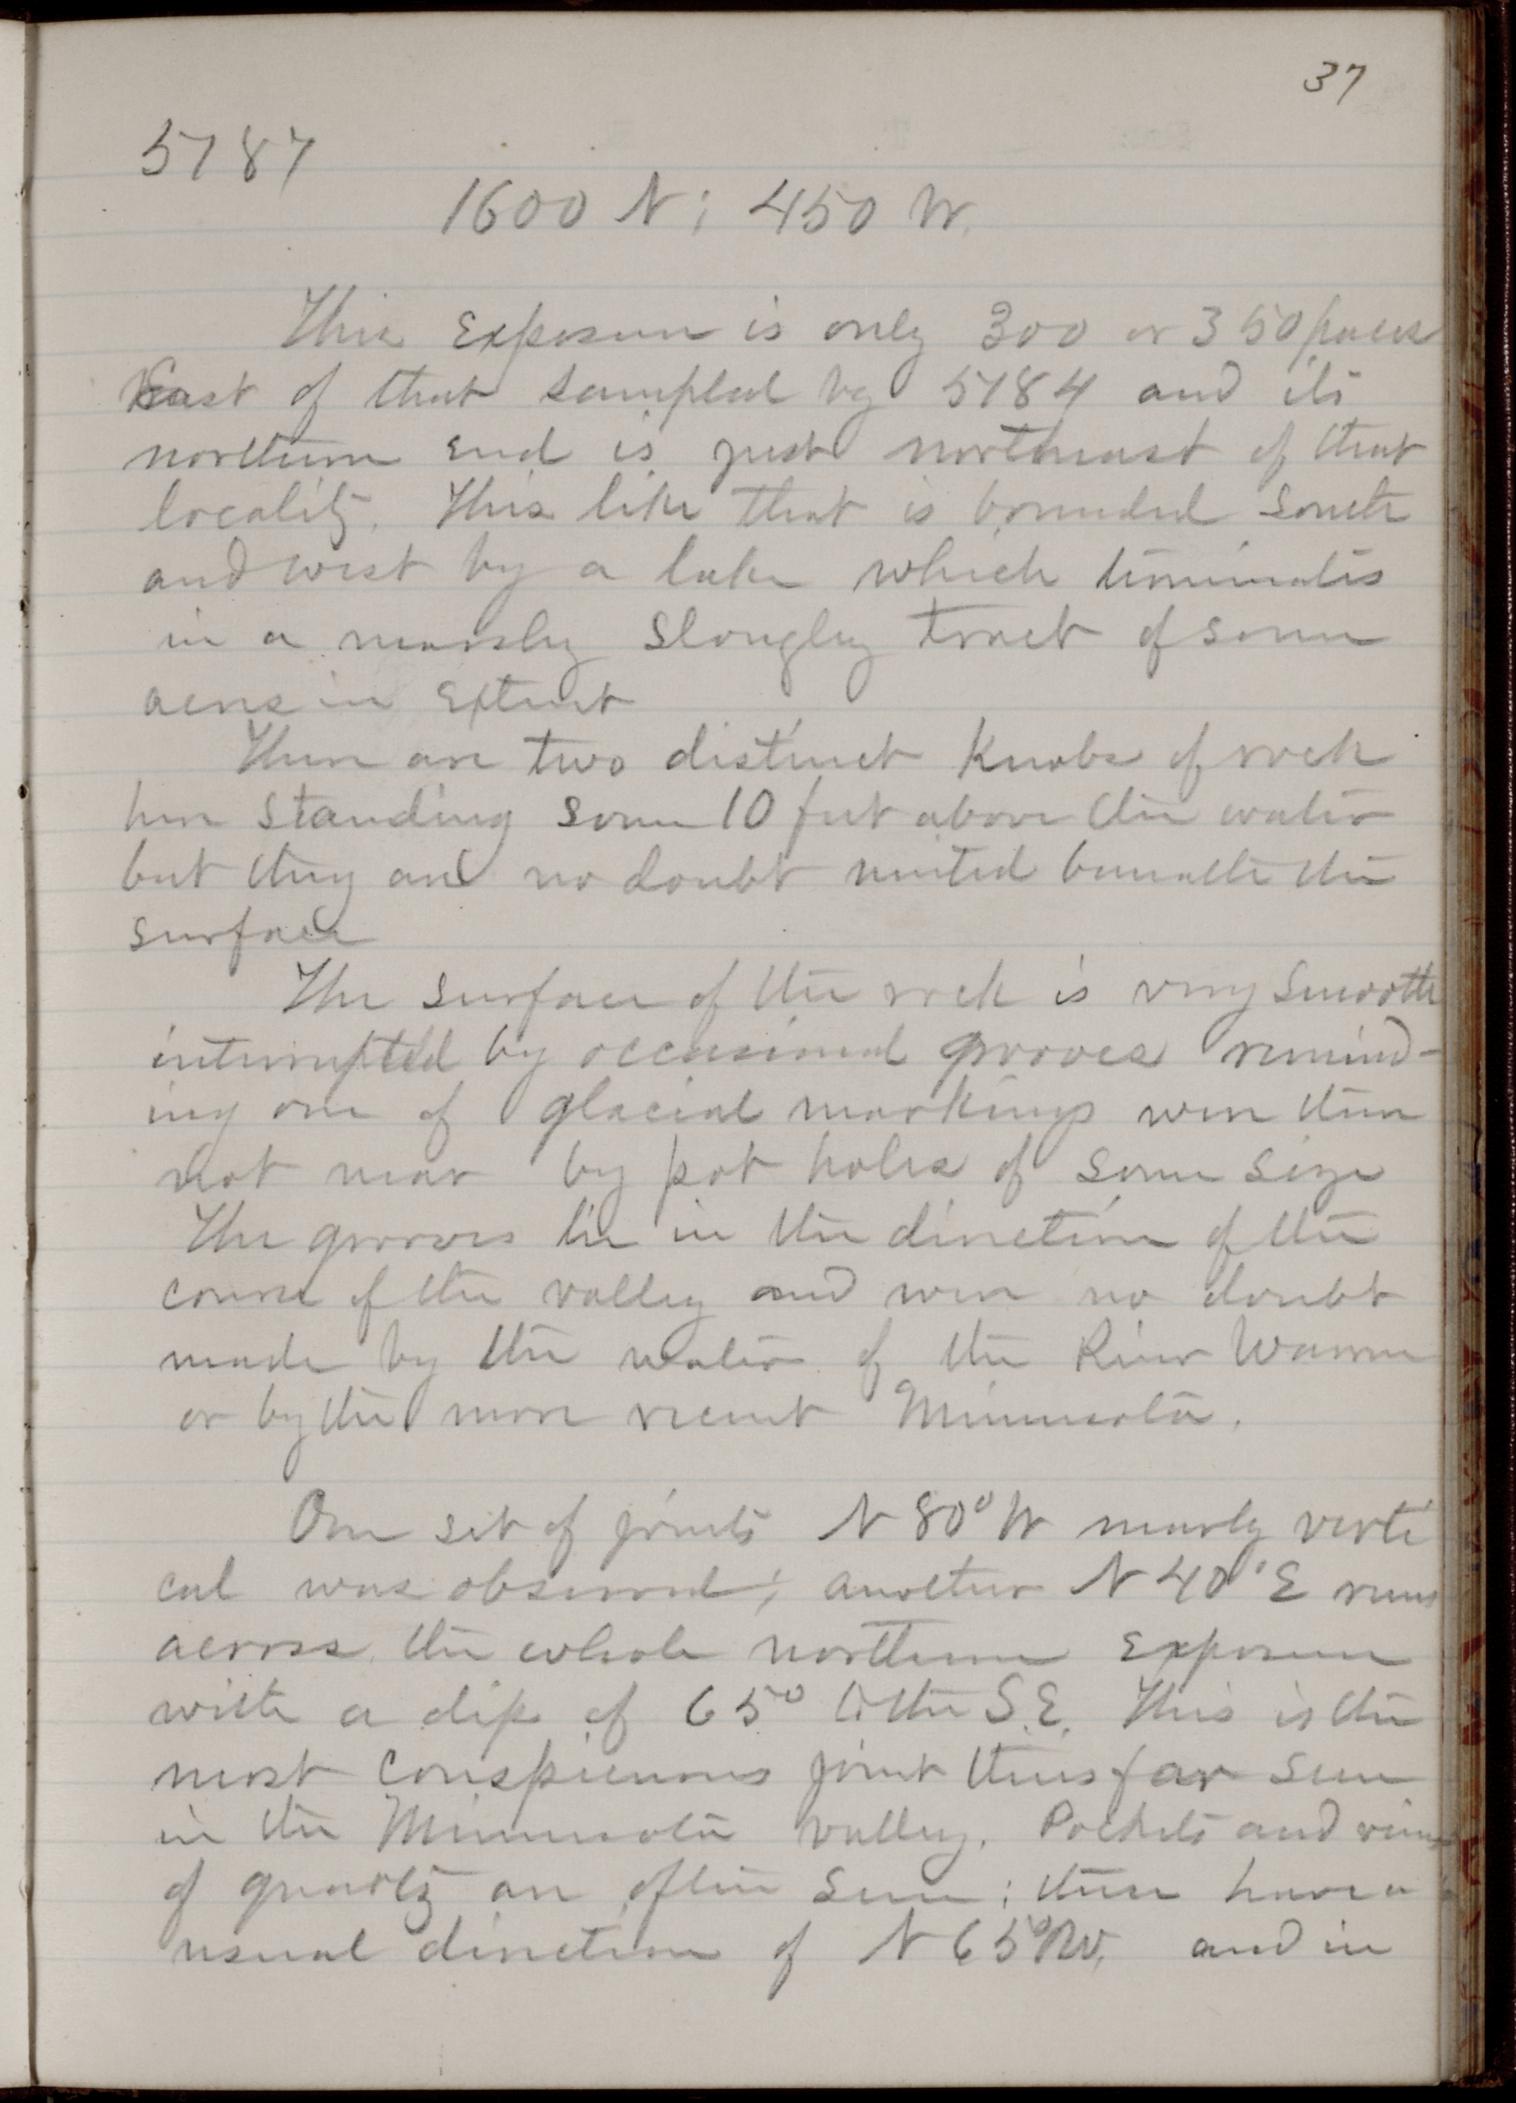 37
5187
1600 N; 450 W.
This Exposure is only 300 or 350 paces
East of that sampled by 5184 and its
northern End is just northeast of that
locality. This like that is bounded South
and west by a lake which terminates
in a marshy Sloughy tract of some
acres in Extent
There are two distinct Knobs of rock
here Standing Some 10 feet above the water
but they are no doubt united beneath the
surface
The surface of the rock is very Smooth
interrupted by occasional grooves remind-
ing one of glacial markings were there
not near by pot holes of some size
The grooves lie in the direction of the
course of the valley and were no doubt
made by the water of the River Warren
or by the more recent Minnesota.
One set of joints N 80° W nearly verti
cal was observed; another N 40° E runs
across the whole northern Exposure
with a dip of 65° to the S.E. This is the
most Conspicuous joint thus far seen
in the Minnesota valley. Pockets and veins
of quartz are often seen; these have a
usual direction of N 65° W. and in